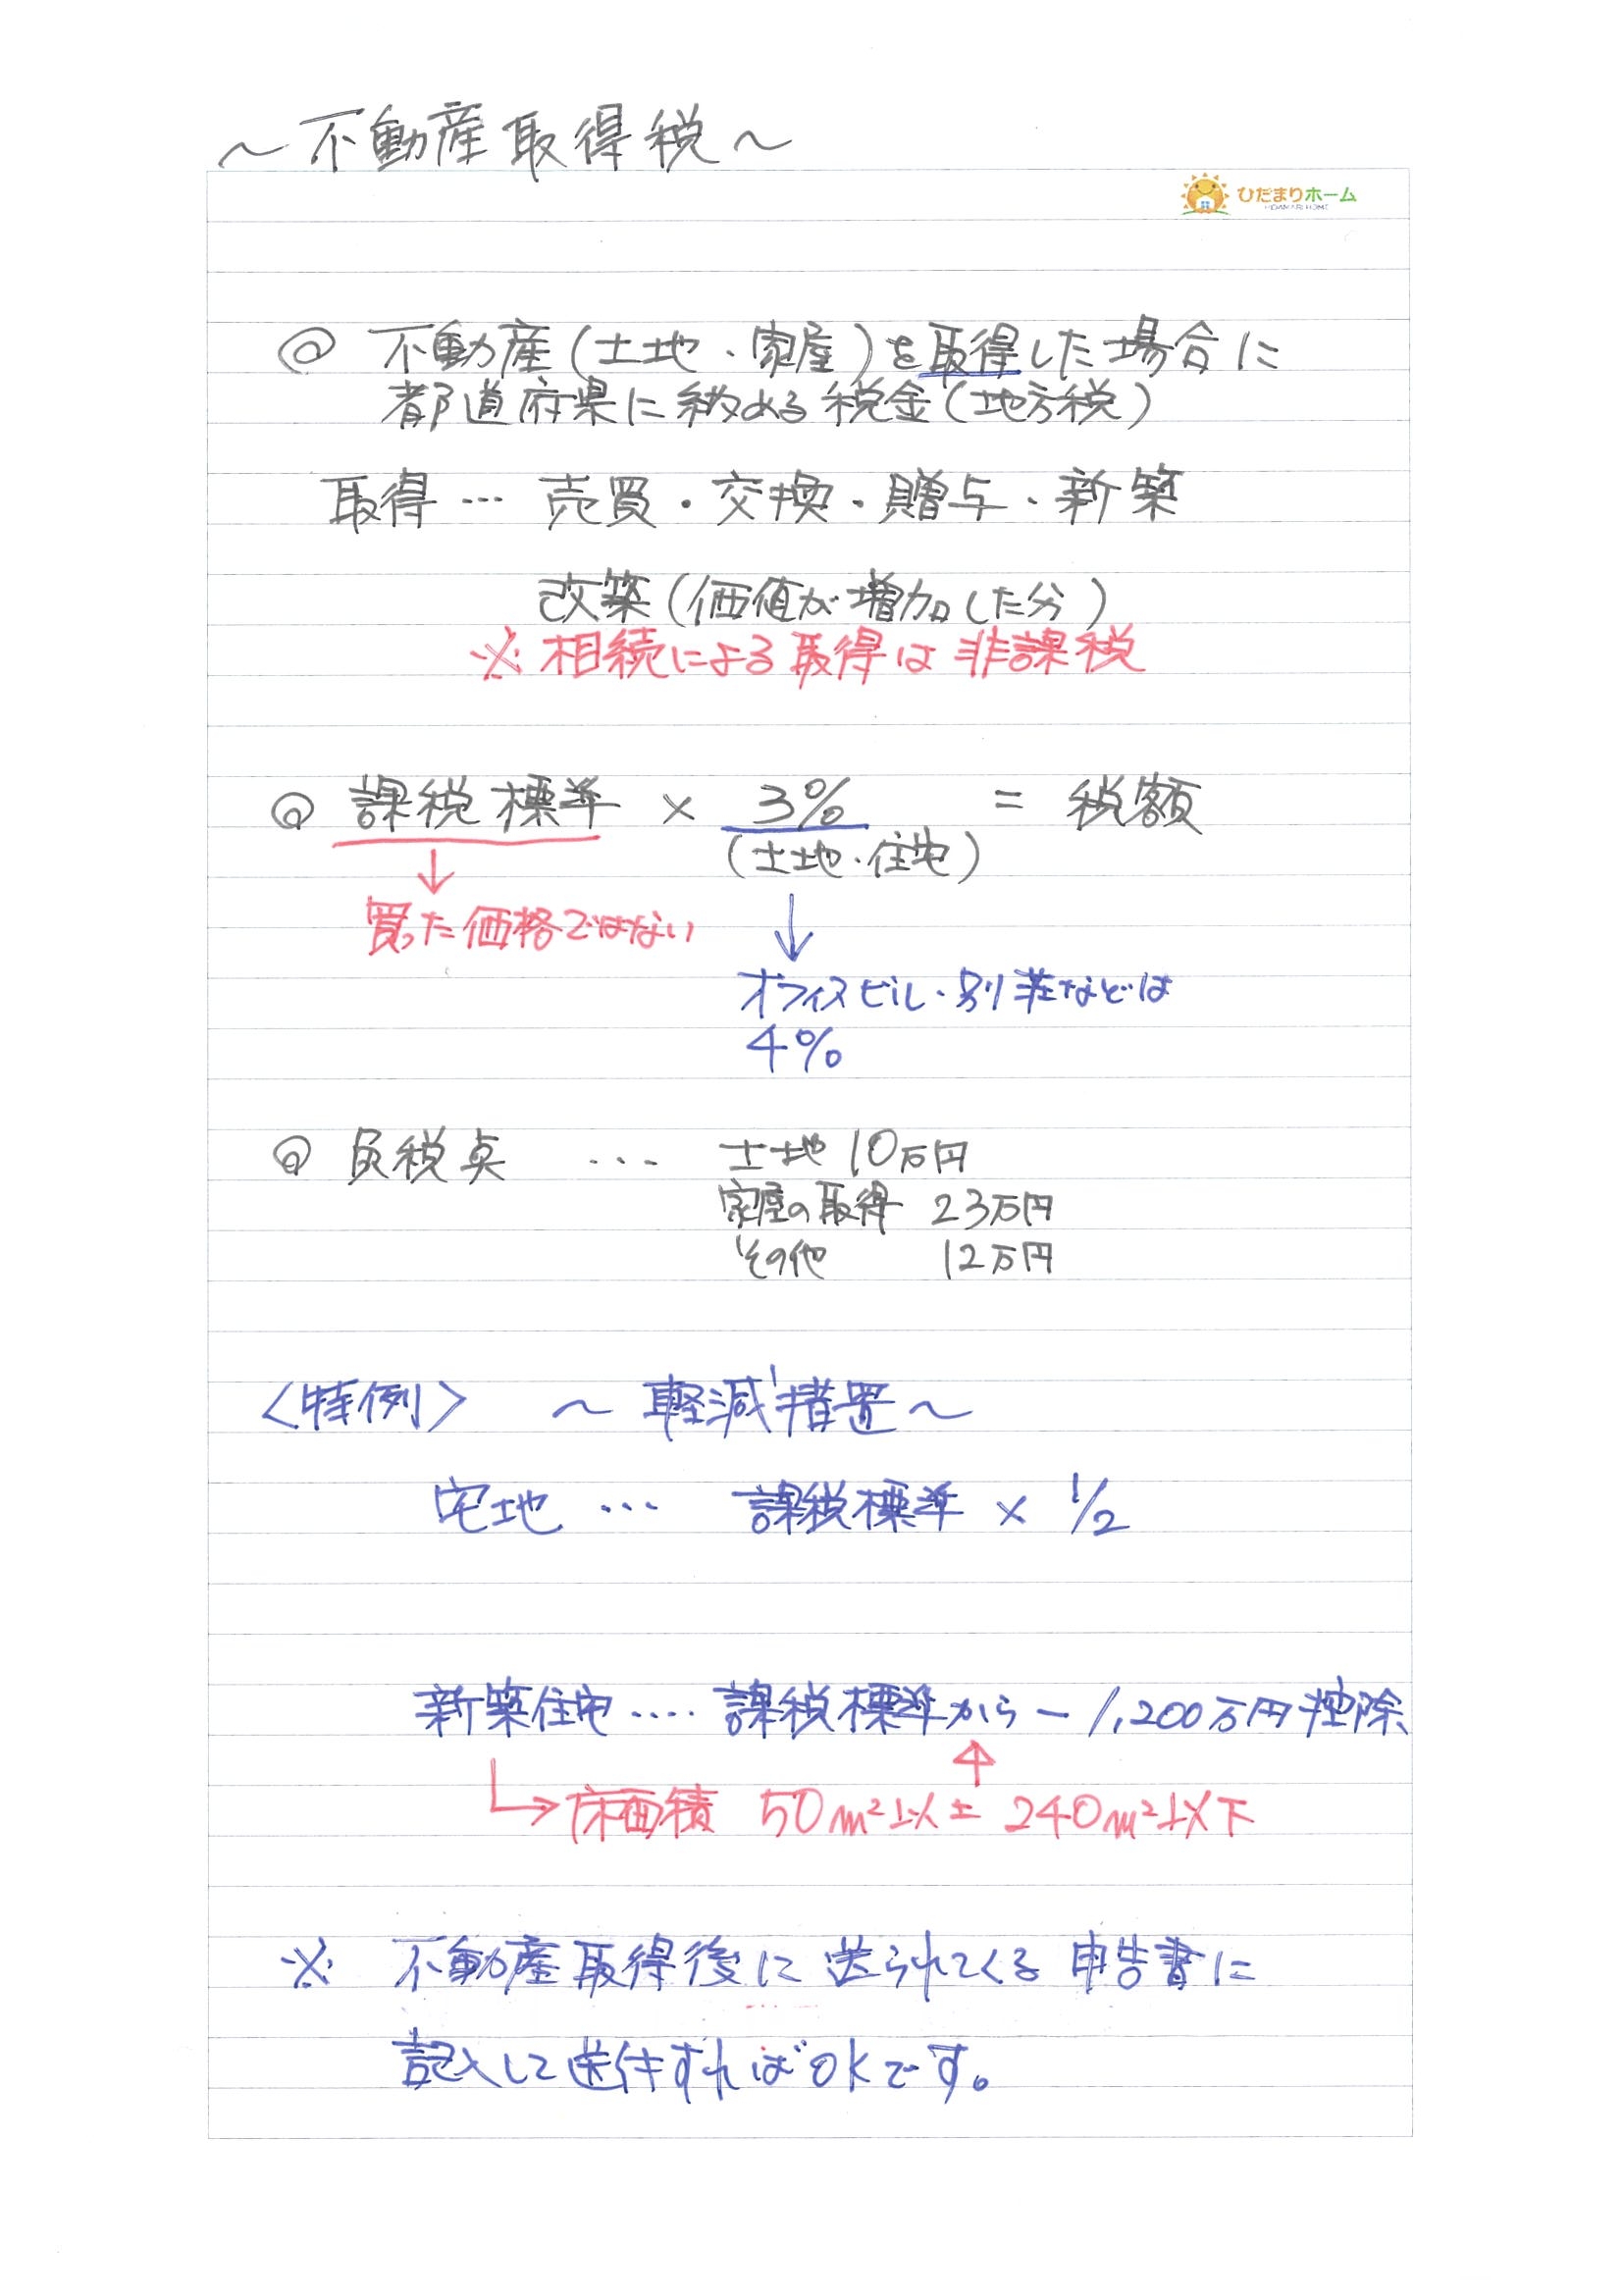 ～不動産取得税～
ひだまりホーム
HIDAMARI HOME
◎ 不動産(土地・家屋)を取得した場合に
都道府県に納める税金(地方税)
取得… 売買・交換・贈与・新築
改築(価値が増加した分)
※相続による取得は非課税
◎ 課税標準 × 3% = 税額
(土地・住宅)
↓
買った価格ではない
↓
オフィスビル・別荘などは
4%
◎ 免税点 … 土地 10万円
家屋の取得 23万円
その他 12万円
<特例> ～軽減措置～
宅地 … 課税標準 × 1/2
新築住宅‥‥ 課税標準から－1,200万円控除
↑
→床面積 50m²以上 240m²以下
※ 不動産取得後に送られてくる申告書に
記入して送付すればOKです。